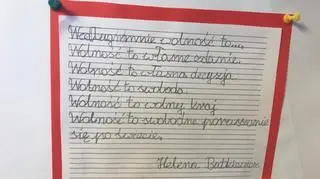 Według mnie wolność to...
Wolność to własne zdanie.
Wolność to własna decyzja
Wolność to swoboda.
Wolność to wolny kraj
Wolność to swobodne poruszanie
się po świecie.
Helena